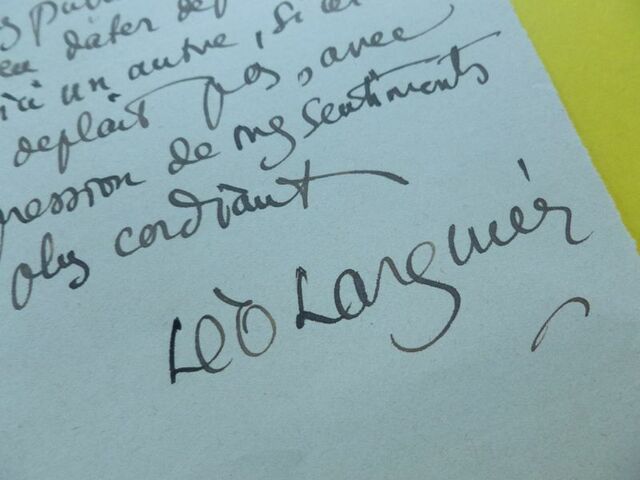 dater
un autre, si
deplaît pas, avec
pression de mes sentiments
plus cordiaux
Léo Larguier